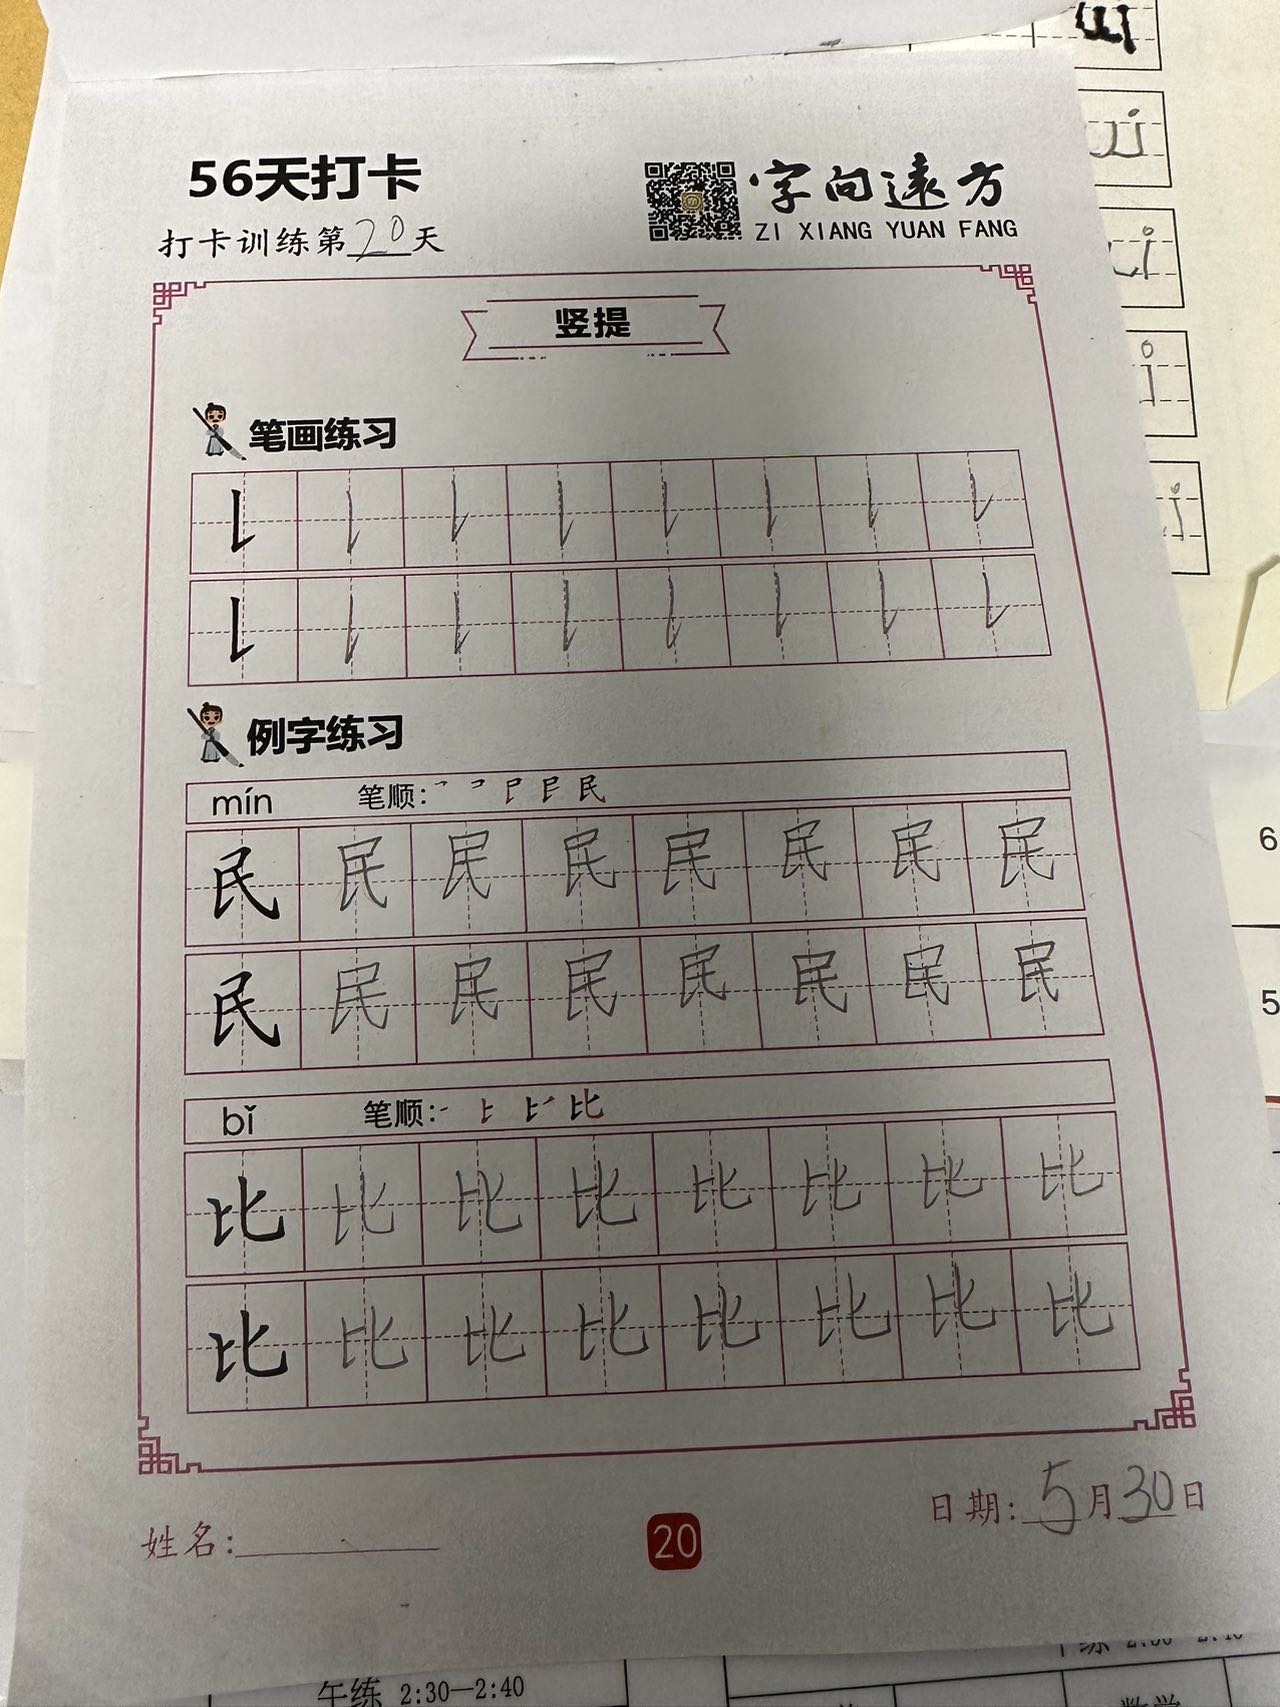 56天打卡
字向遠方
打卡训练第20天
ZI XIANG YUAN FANG
竖提
笔画练习
例字练习
mín 笔顺: 民
民 民 民 民 民 民 民 民
民 民 民 民 民 民 民 民
bǐ 笔顺: 比
比 比 比 比 比 比 比 比
比 比 比 比 比 比 比 比
日期: 5月30日
姓名:
20
午练 2:30—2:40
6
5